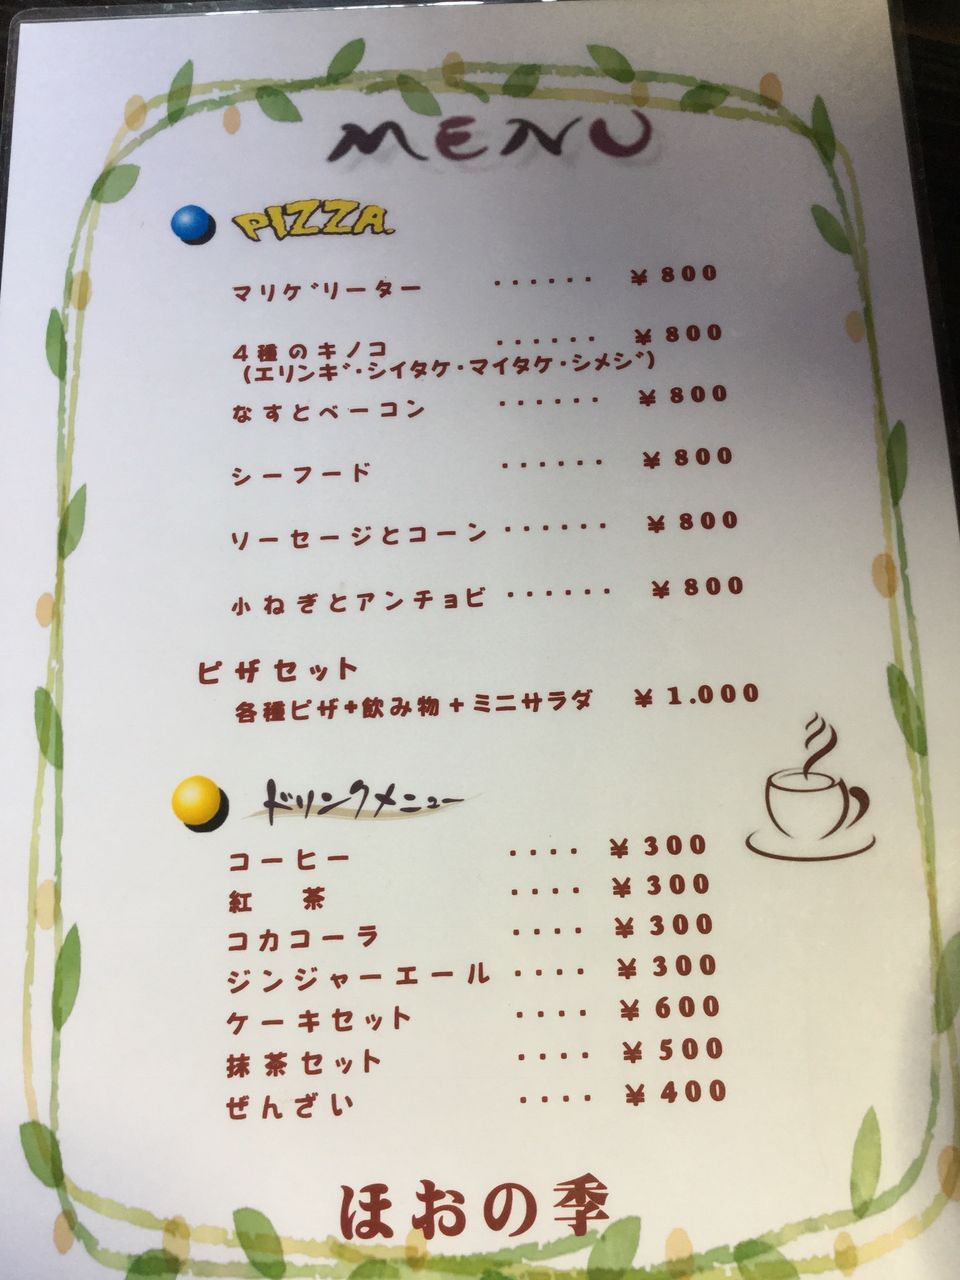 MENU
PIZZA.
マリゲリーター ······ ¥800
4種のキノコ ······ ¥800
(エリンギ・シイタケ・マイタケ・シメジ)
なすとベーコン ······ ¥800
シーフード ······ ¥800
ソーセージとコーン ······ ¥800
小ねぎとアンチョビ ······ ¥800
ピザセット
各種ピザ+飲み物+ミニサラダ ¥1.000
ドリンクメニュー
コーヒー ···· ¥300
紅 茶 ···· ¥300
コカコーラ ···· ¥300
ジンジャーエール ···· ¥300
ケーキセット ···· ¥600
抹茶セット ···· ¥500
ぜんざい ···· ¥400
ほおの季